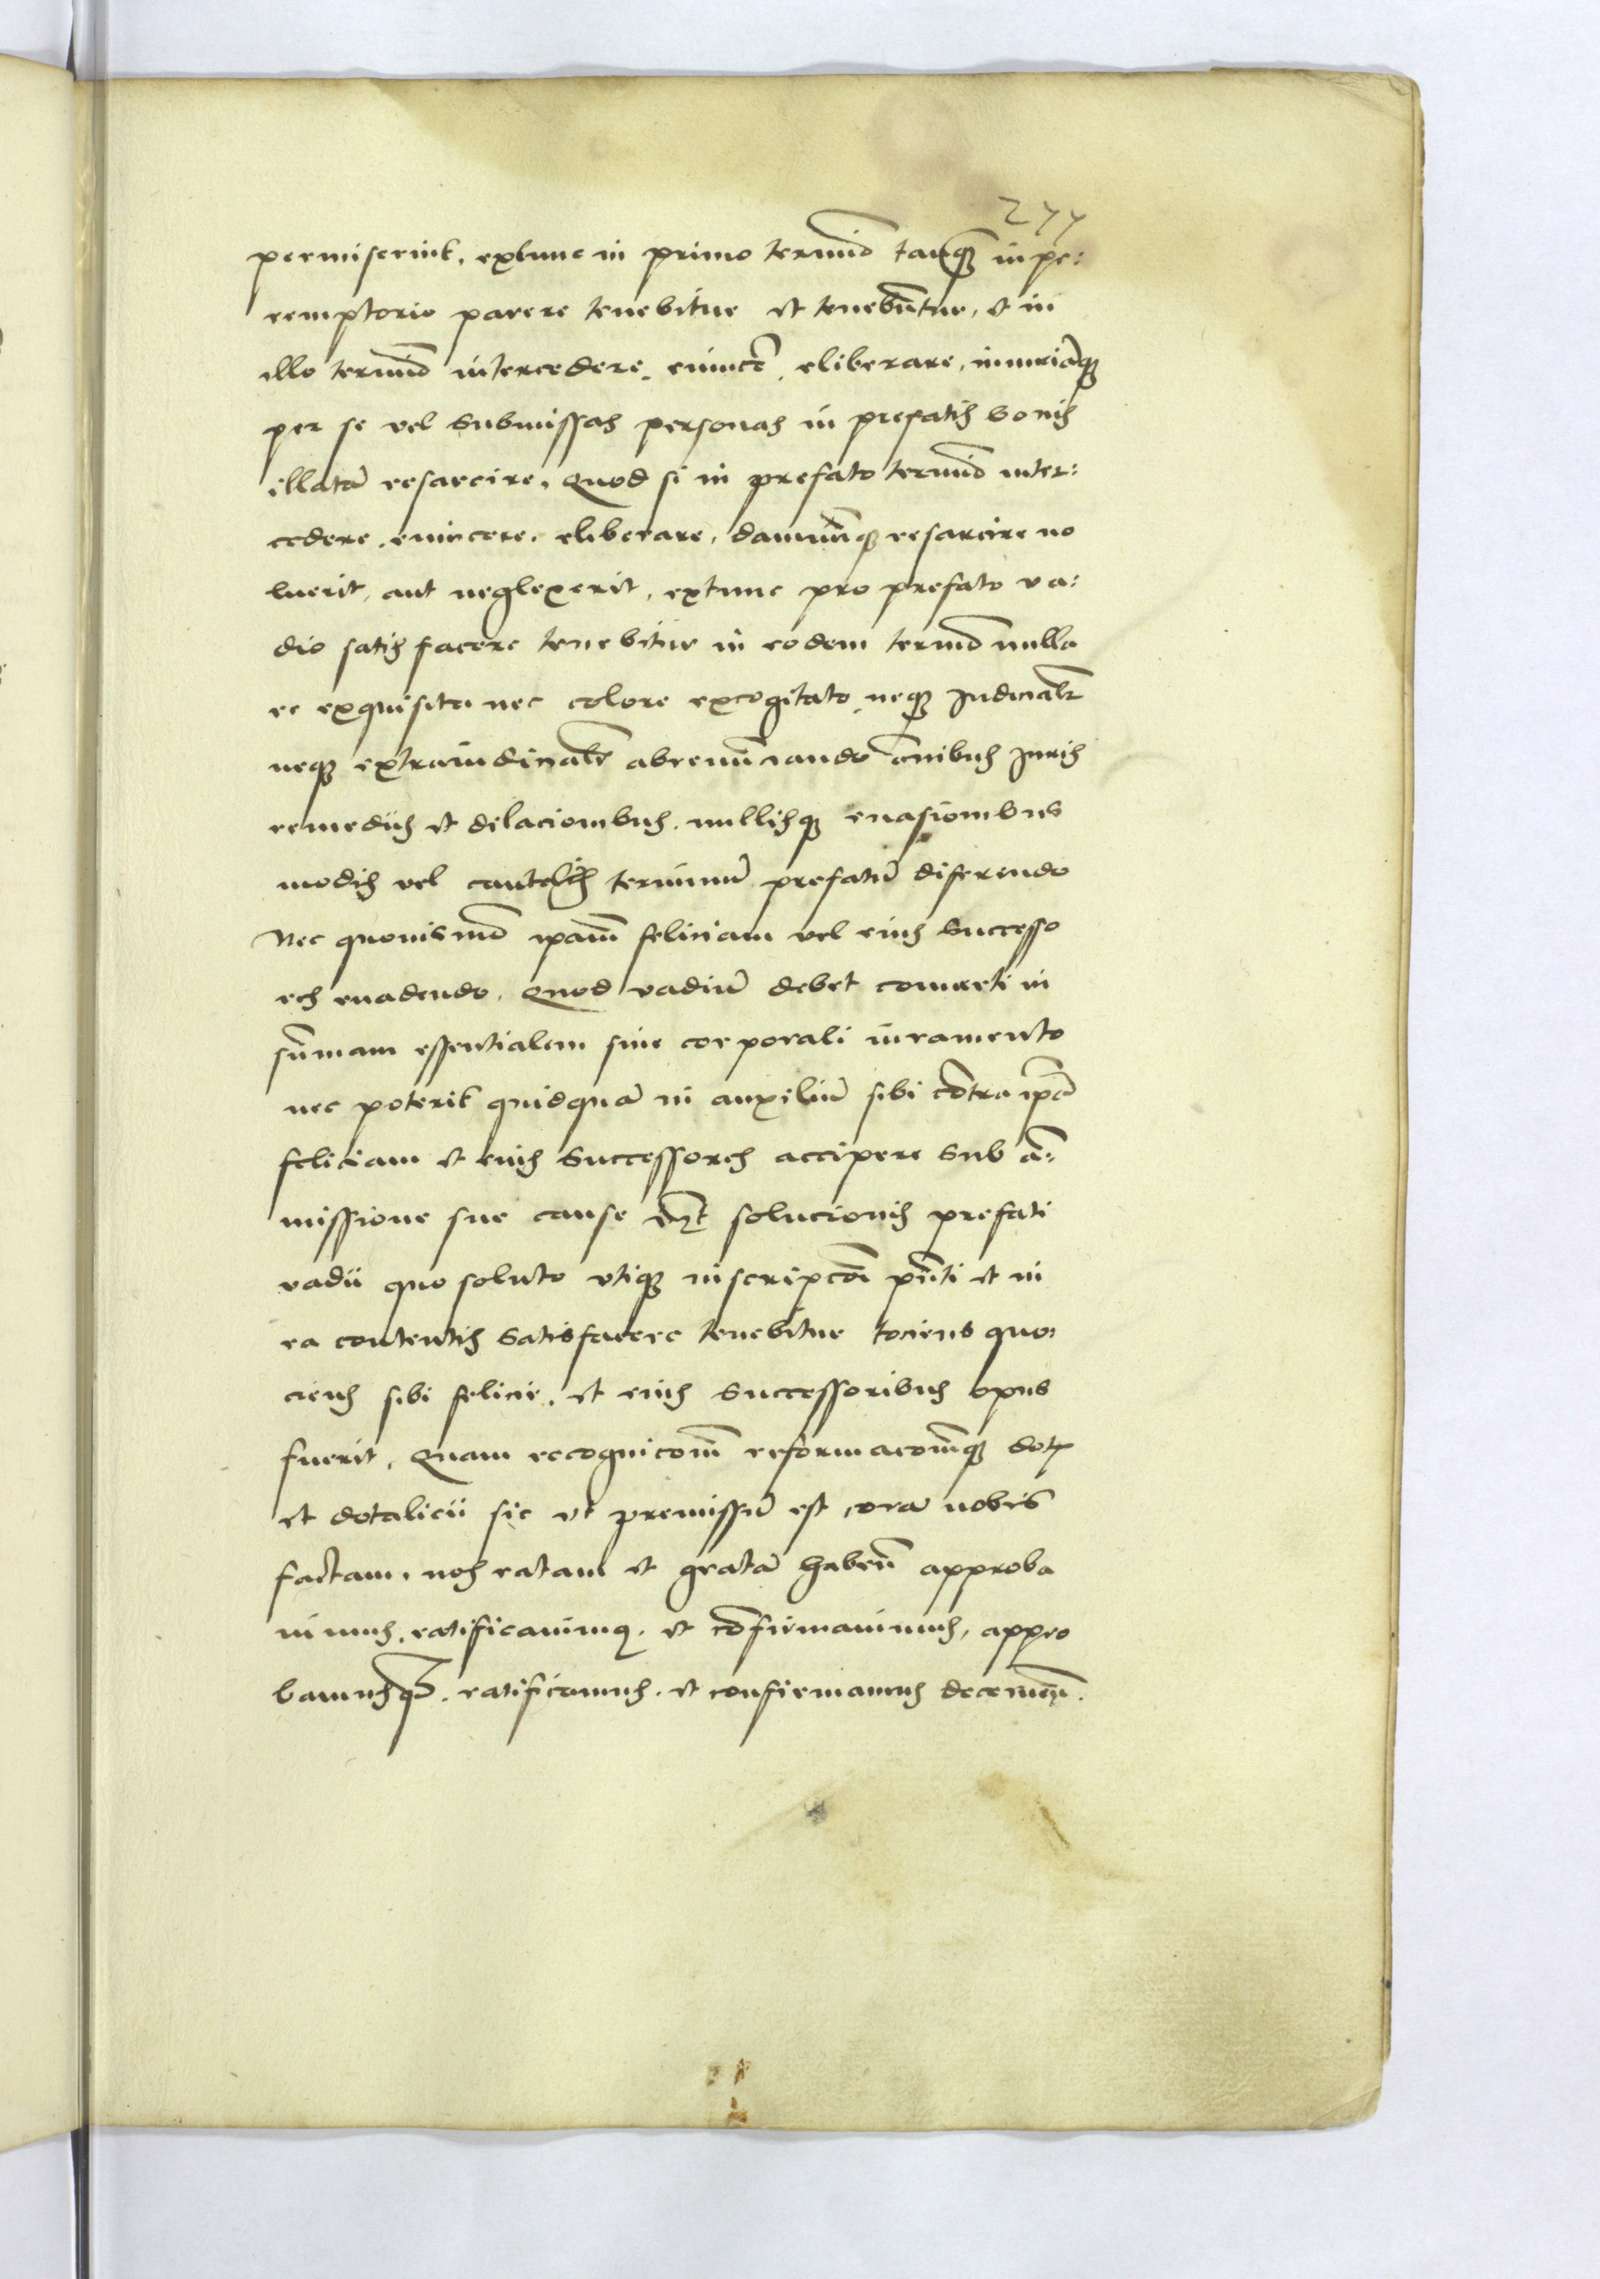 277
permiserint, extunc in primo termīo tanq̃ in pe:
remptorio parere tenebitur et tenebūtur, et in
illo termīo intercedere, euincē, eliberare, iniuriāq̃
per se vel submissas personas in prefatis bonis
illatā resarcire, Quod si in prefato termīo inter:
cedere, euincere, eliberare, damnūq̃ resarcire no
luerit, aut neglexerit, extunc pro prefato va:
dio satisfacere tenebitur in eodem termīo nulla
re exquisita nec colore excogitato, neq̃ Iudicialr̃
neq̃ extraiudicialr̃ abrenūciando om̄ibus Iuris
remediis et dilacionibus, nullisq̃ euasionibus
modis vel cautelis terminū prefatū diferendo
Nec quouismō ipam̄ feliciam vel eius Successo
res euadendo, Quod vadiū debet conuerti in
sūmam essentialem sine corporali iuramento
nec poterit quidquā in auxiliū sibi cōtra ip̄ā
feliciam et eius Successores accipere sub ā:
missione sue cause et solucionis prefati
vadii quo soluto vtiq̃ inscripcōi pn̄ti et in
ea contentis satisfacere tenebitur tociens quo:
ciens sibi felicie, et eius Successoribus opus
fuerit, Quam recognicōm̄ reformacōm̄q̃ dotis
et dotalicii sic vt premissū est corā nobis
factam, nos ratam et gratā haben̄ approba
uimus, ratificauimꝰ, et cōfirmauimus, appro
bamusq̃, ratificamus, et confirmamus decernen̄.